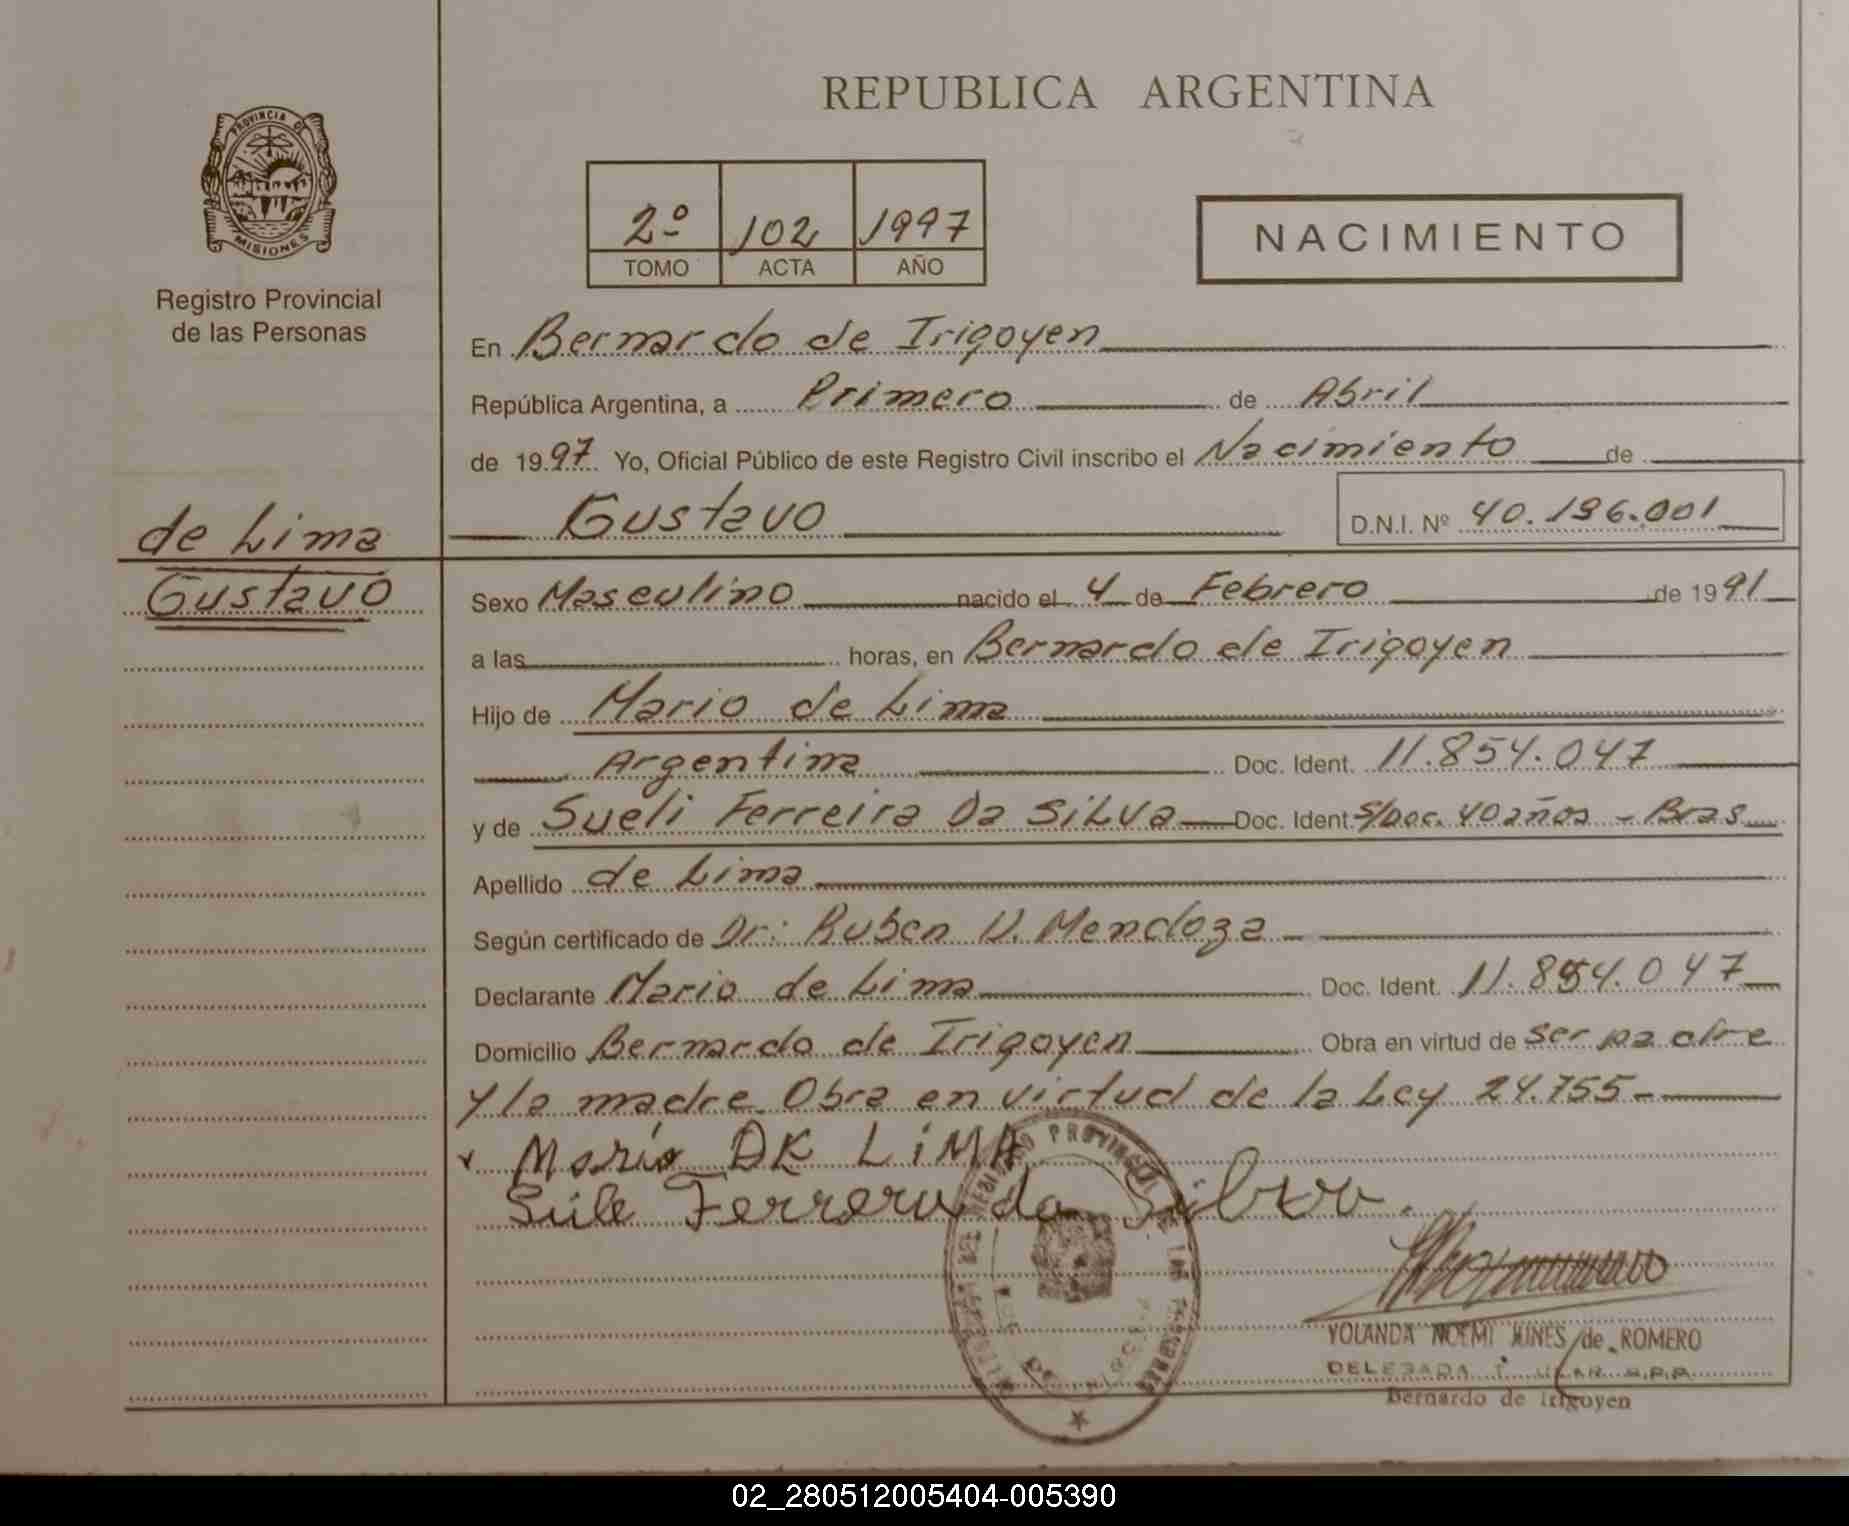 REPUBLICA ARGENTINA
PROVINCIA DE
MISIONES
Registro Provincial
de las Personas
2º 102 1997
TOMO ACTA AÑO
NACIMIENTO
En Bernardo de Irigoyen
República Argentina, a Primero de Abril
de 1997 Yo, Oficial Público de este Registro Civil inscribo el Nacimiento de
Gustavo D.N.I. Nº 40.196.001
de Lima
Gustavo
Sexo Masculino nacido el 4 de Febrero de 1991
a las horas, en Bernardo de Irigoyen
Hijo de Mario de Lima
Argentina Doc. Ident. 11.854.047
y de Sueli Ferreira Da Silva Doc. Ident. S/Doc. 40 años - Bras
Apellido de Lima
Según certificado de Dr: Ruben V. Mendoza
Declarante Mario de Lima Doc. Ident. 11.854.047
Domicilio Bernardo de Irigoyen Obra en virtud de ser padre
y la madre Obra en virtud de la Ley 24.755-
Mario DE LiMA
Sule Ferreru da Silva.
YOLANDA NOEMI de ROMERO
DELEGADA
Bernardo de Irigoyen
02_280512005404-005390